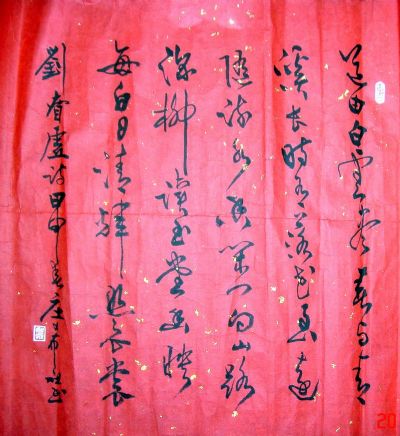 道由白雲尽春与青
溪長時有落花至遠
隨流水香閒门向山路
深柳讀書堂幽映
每白日清輝照衣裳
劉眘虛诗甲申春庄希
20